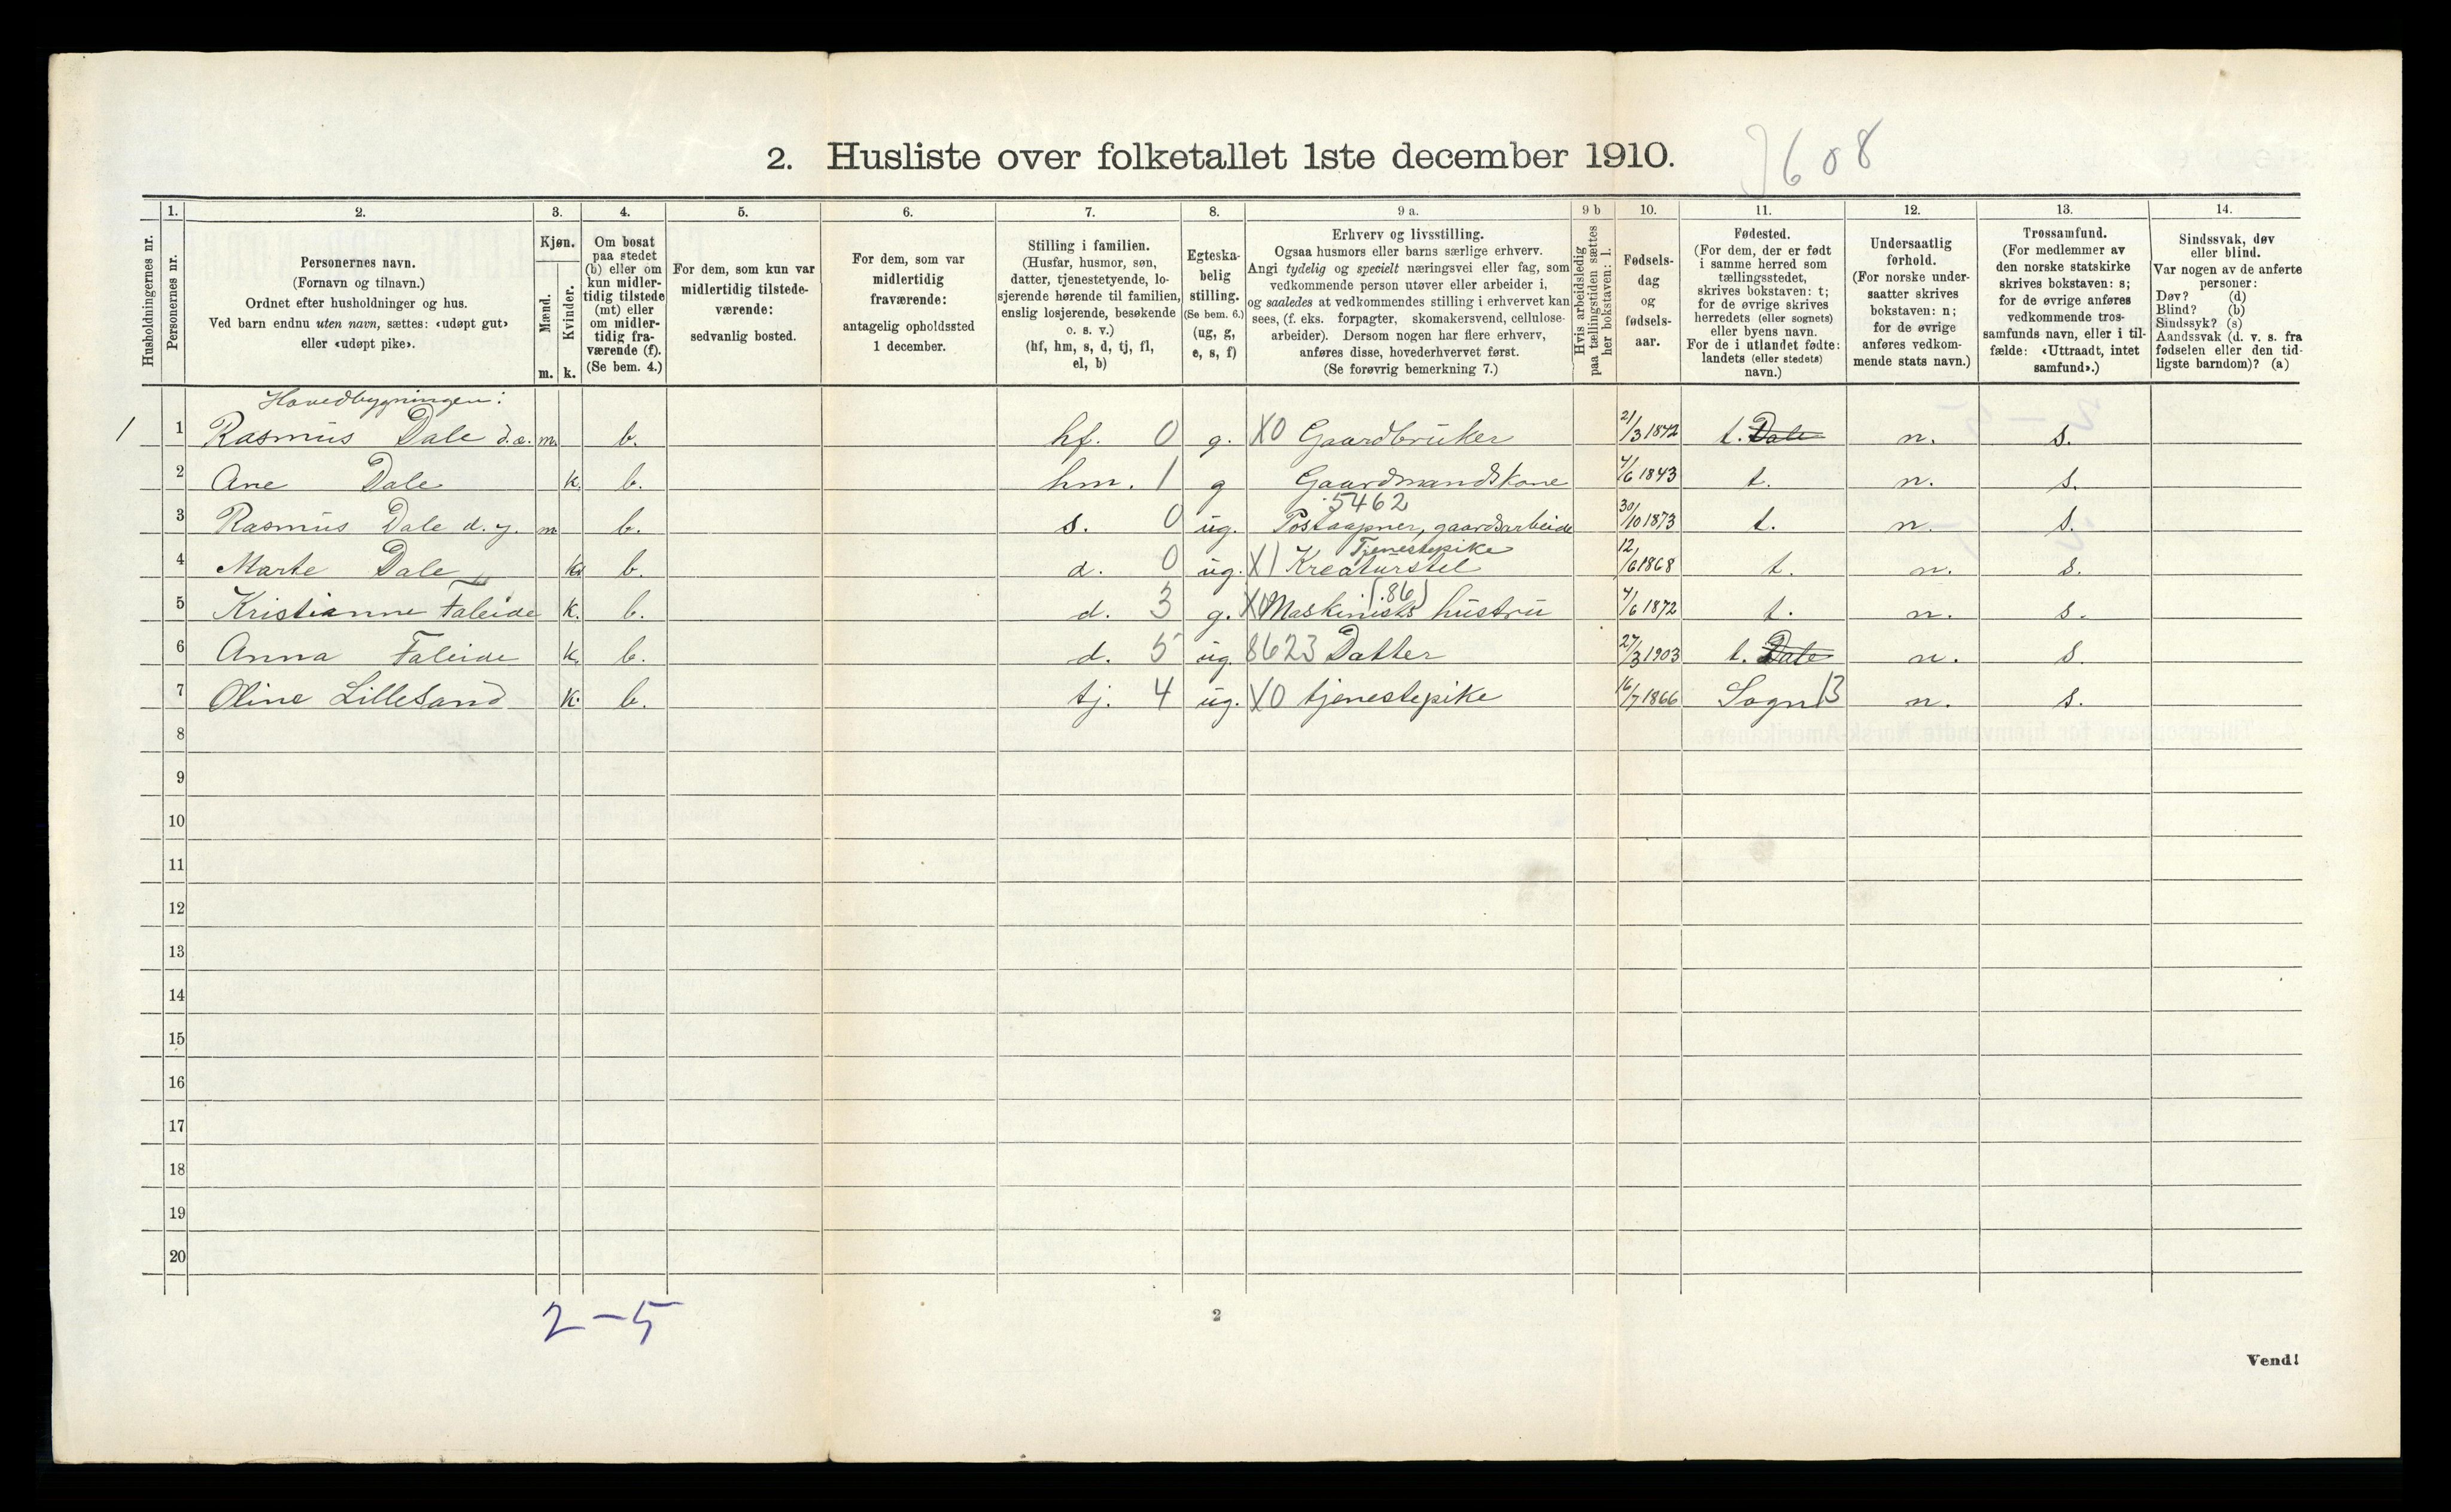 2. Husliste over folketallet 1ste december 1910.
608
Husholdningernes nr.
1.
Personernes nr.
2.
Personernes navn.
(Fornavn og tilnavn.)
Ordnet efter husholdninger og hus.
Ved barn endnu uten navn, sættes: «udøpt gut»
eller «udøpt pike».
3.
Kjøn.
Mænd.
Kvinder.
m. k.
4.
Om bosat
paa stedet
(b) eller om
kun midler-
tidig tilstede
(mt) eller
om midler-
tidig fra-
værende (f).
(Se bem. 4.)
5.
For dem, som kun var
midlertidig tilstede-
værende:
sedvanlig bosted.
6.
For dem, som var
midlertidig
fraværende:
antagelig opholdssted
1 december.
7.
Stilling i familien.
(Husfar, husmor, søn,
datter, tjenestetyende, lo-
sjerende hørende til familien,
enslig losjerende, besøkende
o. s. v.)
(hf, hm, s, d, tj, fl,
el, b)
8.
Egteska-
belig
stilling.
(Se bem. 6.)
(ug, g,
e, s, f)
9 a.
Erhverv og livsstilling.
Ogsaa husmors eller barns særlige erhverv.
Angi tydelig og specielt næringsvei eller fag, som
vedkommende person utøver eller arbeider i,
og saaledes at vedkommendes stilling i erhvervet kan
sees, (f. eks. forpagter, skomakersvend, cellulose-
arbeider). Dersom nogen har flere erhverv,
anføres disse, hovederhvervet først.
(Se forøvrig bemerkning 7.)
9 b
Hvis arbeidsledig
paa tællingstiden sættes
her bokstaven: l.
10.
Fødsels-
dag
og
fødsels-
aar.
11.
Fødested.
(For dem, der er født
i samme herred som
tællingsstedet,
skrives bokstaven: t;
for de øvrige skrives
herredets (eller sognets)
eller byens navn.
For de i utlandet fødte:
landets (eller stedets)
navn.)
12.
Undersaatlig
forhold.
(For norske under-
saatter skrives
bokstaven: n;
for de øvrige
anføres vedkom-
mende stats navn.)
13.
Trossamfund.
(For medlemmer av
den norske statskirke
skrives bokstaven: s;
for de øvrige anføres
vedkommende tros-
samfunds navn, eller i til-
fælde: «Uttraadt, intet
samfund».)
14.
Sindssvak, døv
eller blind.
Var nogen av de anførte
personer:
Døv? (d)
Blind? (b)
Sindssyk? (s)
Aandssvak (d. v. s. fra
fødselen eller den tid-
ligste barndom)? (a)
Hovedbygningen:
1 1 Rasmus Dale d.æ. m. b. hf. 0 g. X0 Gaardbruker 21/3 1842 t. Dale n. s.
2 Ane Dale k. b. hm. 1 g Gaardmandskone 4/6 1843 t. n. s.
5462
3 Rasmus Dale d. y. m b. s. 0 ug. Postaapner, gaardsarbeide 30/10 1873 t. n. s.
Tjenestepike
4 Marte Dale k. b. d. 0 ug. X1 Kreaturstel 12/6 1868 t. n. s.
(.86)
5 Kristianne Faleide k. b. d. 3 g. X0 Maskinists hustru 4/6 1872 t. n. s.
6 Anna Faleide k. b. d. 5 ug. 8623 Datter 27/3 1903 t. Dale n. s.
7 Oline Lillesand k. b. tj. 4 ug. X0 tjenestepike 16/7 1866 Sogn 13 n. s.
8
9
10
11
12
13
14
15
16
17
18
19
20
2-5
2
Vend!